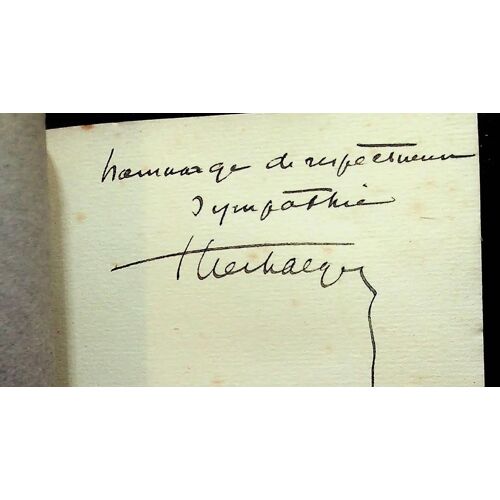 hommage de respectueuse
sympathie